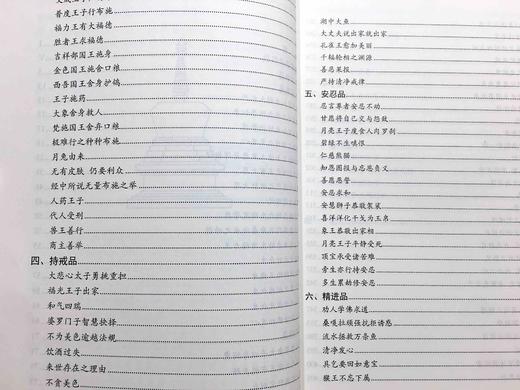 普度王子行布施
福力王有大福德
胜者王求福德
吉祥部国王施身
金色国王施食口粮
西吾国王舍身护鸽
王子施药
大象舍身救人
梵施国王舍弃口粮
极难行之种种布施
月兔由来
无有皮肤 仍要利众
经中所说无量布施之举
人药王子
代人受刑
兽王善行
商主善举
四、持戒品
大悲心太子勇挑重担
福光王子出家
和气四瑞
婆罗门子智慧抉择
不为美色逾越法规
饮酒过失
来世存在之理由
不贪美色
湖中大鱼
大丈夫说出家就出家
孔雀王愈加美丽
千辐轮相之渊源
善恶果报
严持清净戒律
五、安忍品
安忍言尊者安忍不动
甘愿将自己交与怨敌
月亮王子度食人肉罗刹
碧绿不生嗔恨
仁慈熊猫
知恩图报与忘恩负义
善愿恶誓
安忍求和
安慧狮子恭敬袈裟
喜洋洋化干戈为玉帛
象王恭敬出家相
月亮王子平静受死
顶宝承受诸苦难
奎生亦行持安忍
多生累劫修安忍
六、精进品
劝人学佛求道
桑嘎拉顽强抗拒诱惑
流水拯救万条鱼
清净发心
具乞要回如意宝
猴王不忘下属